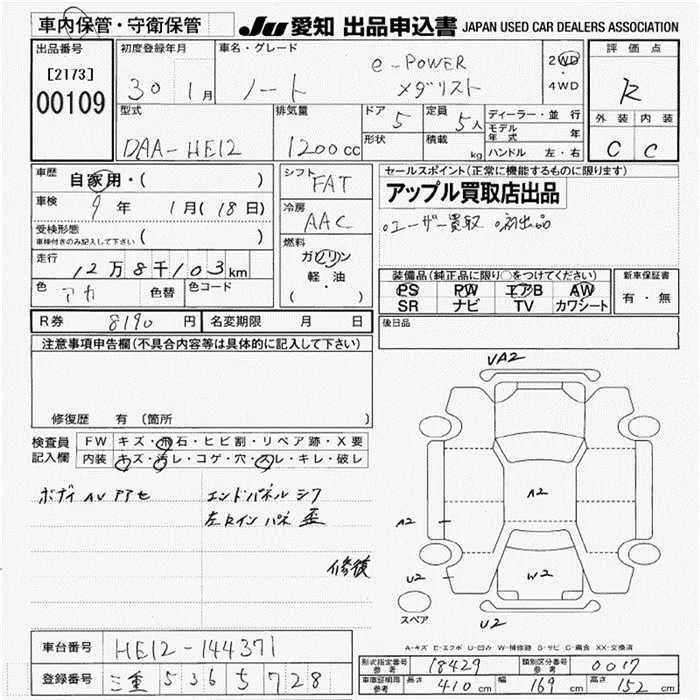 車内保管・守衛保管 JU 愛知 出品申込書 JAPAN USED CAR DEALERS ASSOCIATION
出品番号 初度登録年月 車名・グレード 評価点
[2173] 30 1月 ノート e-POWER メダリスト 2WD ・ 4WD R
00109
型式 排気量 ドア 5 定員 5人 ディーラー・並行 外装 内装
DAA-HE12 1200cc 形状 積載 kg モデル年式 年 C C
ハンドル 左・右
車歴 自家用・( ) シフト FAT セールスポイント(正常に機能するものに限ります)
アップル買取店出品
車検 9年 1月(18日) 冷房 AAC ○ユーザー買取 ○初出品
受検形態
車検付きのみ記入して下さい ( ) 燃料
走行 12万8千103km ガソリン 軽・油 ( ) 装備品(純正品に限り○をつけてください) 新車保証書
色 アカ 色替 色コード PS PW エアB AW 有・無
SR ナビ TV カワシート
R券 8190円 名変期限 月 日 後日品
注意事項申告欄(不具合内容等は具体的に記入して下さい)
修復歴 有 〔箇所
検査員 記入欄 FW キズ・飛石・ヒビ割・リペア跡・X要
内装 キズ・汚レ・コゲ・穴・スレ・キレ・破レ
ボディ AU アアセ エンドパネル シワ
左Rインパネ 歪
修復
VA2
A2
A2
U2 W2
スペア U2
A-キズ E-エクボ U-凹み W-補修跡 S-サビ C-腐食 XX-交換済
車台番号 HE12-144371
型式指定番号 参考 18429 類別区分番号 参考 0017
登録番号 三重 536 5 728
車検証記録 参考 長さ 410cm 幅 169cm 高さ 152cm